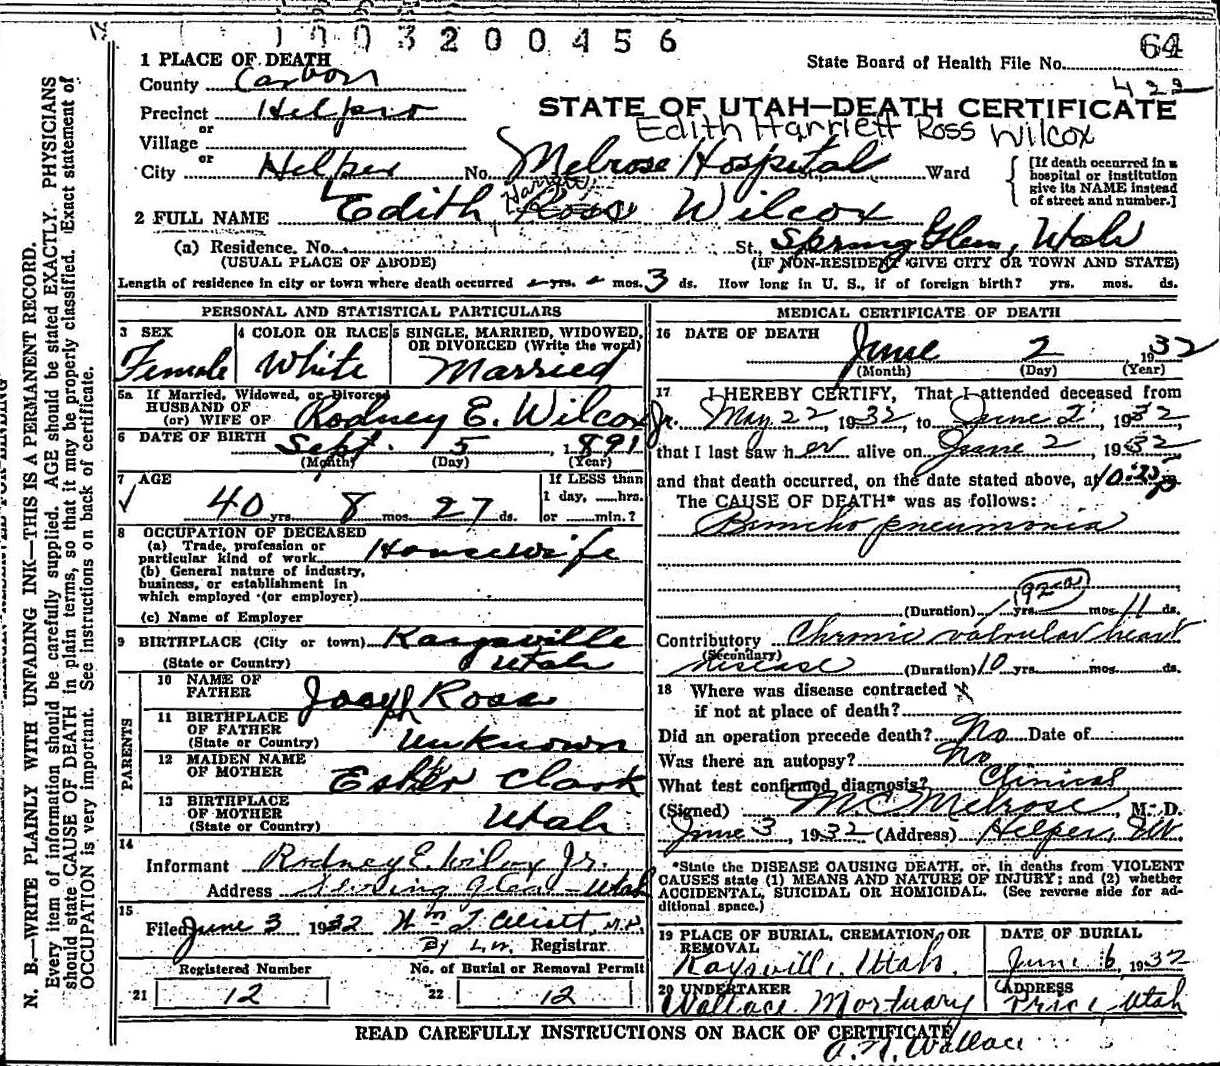 1003200456
64
State Board of Health File No.
422
1 PLACE OF DEATH
County Carbon
Precinct Helper
or
Village
or
City Helper No. Melrose Hospital Ward
STATE OF UTAH—DEATH CERTIFICATE
Edith Harriett Ross Wilcox
[If death occurred in a hospital or institution give its NAME instead of street and number.]
2 FULL NAME Edith Harriett Ross Wilcox
(a) Residence. No. St., Spring Glen, Utah
(USUAL PLACE OF ABODE) (IF NON-RESIDENT GIVE CITY OR TOWN AND STATE)
Length of residence in city or town where death occurred - yrs. - mos. 3 ds. How long in U. S., if of foreign birth? yrs. mos. ds.
PERSONAL AND STATISTICAL PARTICULARS
3 SEX Female
4 COLOR OR RACE White
5 SINGLE, MARRIED, WIDOWED, OR DIVORCED (Write the word) Married
5a If Married, Widowed, or Divorced
HUSBAND OF
(or) WIFE OF Rodney E. Wilcox Jr.
6 DATE OF BIRTH Sept. 5 1891
(Month) (Day) (Year)
7 AGE 40 yrs. 8 mos. 27 ds.
If LESS than
1 day, hrs.
or min.?
8 OCCUPATION OF DECEASED
(a) Trade, profession or
particular kind of work Housewife
(b) General nature of industry,
business, or establishment in
which employed (or employer)
(c) Name of Employer
9 BIRTHPLACE (City or town) Kaysville
(State or Country) Utah
PARENTS
10 NAME OF FATHER Joseph Ross
11 BIRTHPLACE OF FATHER
(State or Country) Unknown
12 MAIDEN NAME OF MOTHER Esther Clark
13 BIRTHPLACE OF MOTHER
(State or Country) Utah
14 Informant Rodney E. Wilcox Jr.
Address Spring Glen Utah
15 Filed June 3 1932 Wm T. Elliott, M.D.
By L.W. Registrar
Registered Number No. of Burial or Removal Permit
21 12 22 12
MEDICAL CERTIFICATE OF DEATH
16 DATE OF DEATH June 2 1932
(Month) (Day) (Year)
17 I HEREBY CERTIFY, That I attended deceased from
May 22 1932, to June 2, 1932
that I last saw her alive on June 2, 1932
and that death occurred, on the date stated above, at 10:25 p
The CAUSE OF DEATH* was as follows:
Broncho pneumonia
92a
(Duration) yrs. mos. 11 ds.
Contributory Chronic valvular heart
(Secondary)
disease (Duration) 10 yrs. mos. ds.
18 Where was disease contracted
if not at place of death?
Did an operation precede death? No Date of
Was there an autopsy? No
What test confirmed diagnosis? Clinical
(Signed) M.C. Melrose, M. D.
June 3, 1932 (Address) Helper, Ut.
*State the DISEASE CAUSING DEATH, or, in deaths from VIOLENT
CAUSES state (1) MEANS AND NATURE OF INJURY; and (2) whether
ACCIDENTAL, SUICIDAL OR HOMICIDAL. (See reverse side for ad-
ditional space.)
19 PLACE OF BURIAL, CREMATION, OR REMOVAL DATE OF BURIAL
Kaysville, Utah. June 6, 1932
20 UNDERTAKER ADDRESS
Wallace Mortuary Price, Utah
READ CAREFULLY INSTRUCTIONS ON BACK OF CERTIFICATE
A. N. Wallace
N. B.—WRITE PLAINLY WITH UNFADING INK—THIS IS A PERMANENT RECORD.
Every item of information should be carefully supplied. AGE should be stated EXACTLY. PHYSICIANS
should state CAUSE OF DEATH in plain terms, so that it may be properly classified. Exact statement of
OCCUPATION is very important. See instructions on back of certificate.